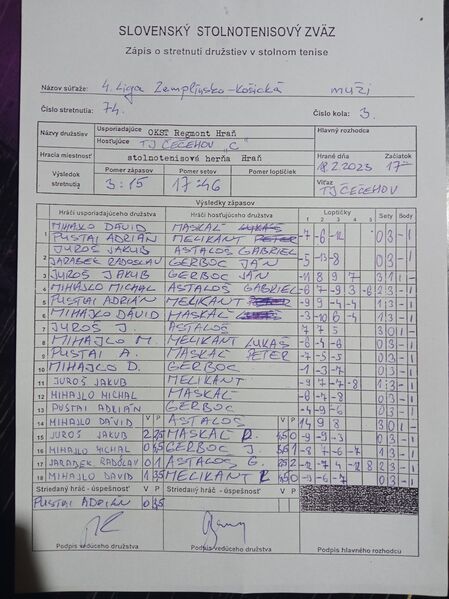 SLOVENSKÝ STOLNOTENISOVÝ ZVÄZ
Zápis o stretnutí družstiev v stolnom tenise
Názov súťaže: 4. liga Zemplínsko-Košická muži
Číslo stretnutia: 74. Číslo kola: 3.
Názvy družstiev Usporiadajúce OKST Regmont Hraň Hlavný rozhodca
Hosťujúce TJ ČEČEHOV "C"
Hracia miestnosť stolnotenisová herňa Hraň Hrané dňa 18.2.2023 Začiatok 17
Výsledok stretnutia Pomer zápasov Pomer setov Pomer loptičiek Víťaz
3:15 17:46 TJ ČEČEHOV
Výsledky zápasov
Hráči usporiadajúceho družstva Hráči hosťujúceho družstva Loptičky Sety Body
1 2 3 4 5
MIHAJLO DAVID MASKAĽ
1 PUSTAI ADRIÁN MELIKANT -7 -6 -12 0 3 - 1
JUROŠ JAKUB ASTALOŠ GABRIEL
2 JARABEK RADOSLAV GERBOC JÁN -5 -13 -8 0 3 - 1
3 JUROŠ JAKUB GERBOC JÁN -11 8 9 7 3 1 1 -
4 MIHAJLO MICHAL ASTALOŠ GABRIEL
5 PUSTAI ADRIÁN MELIKANT -9 9 -4 -4 1 3 - 1
6 MIHAJLO DAVID MASKAĽ -3 -10 6 -4 1 3 - 1
7 JUROŠ J. ASTALOŠ 7 7 5 3 0 1 -
8 MIHAJLO M. MELIKANT LUKÁŠ -6 -4 -8 0 3 - 1
9 PUSTAI A. MASKAĽ PETER -7 -5 -5 0 3 - 1
10 MIHAJLO D. GERBOC -1 -3 -7 0 3 - 1
11 JUROŠ JAKUB MELIKANT -9 7 -7 -8 1 3 - 1
12 MIHAJLO MICHAL MASKAĽ
13 PUSTAI ADRIÁN GERBOC -4 -9 -6 0 3 - 1
14 MIHAJLO DAVID V P ASTALOŠ V P 14 9 8 3 0 1 -
15 JUROŠ JAKUB MASKAĽ P. -9 -9 -3 0 3 - 1
16 MIHAJLO MICHAL GERBOC J. -8 -7 -6 -7 1 3 - 1
17 JARABEK RADOSLAV 0 1 ASTALOŠ G.
18 MIHAJLO DAVID MELIKANT L -9 -6 -7 0 3 - 1
Striedaný hráč - úspešnosť V P Striedaný hráč - úspešnosť V P
PUSTAI ADRIÁN
Podpis vedúceho družstva Podpis vedúceho družstva Podpis hlavného rozhodcu